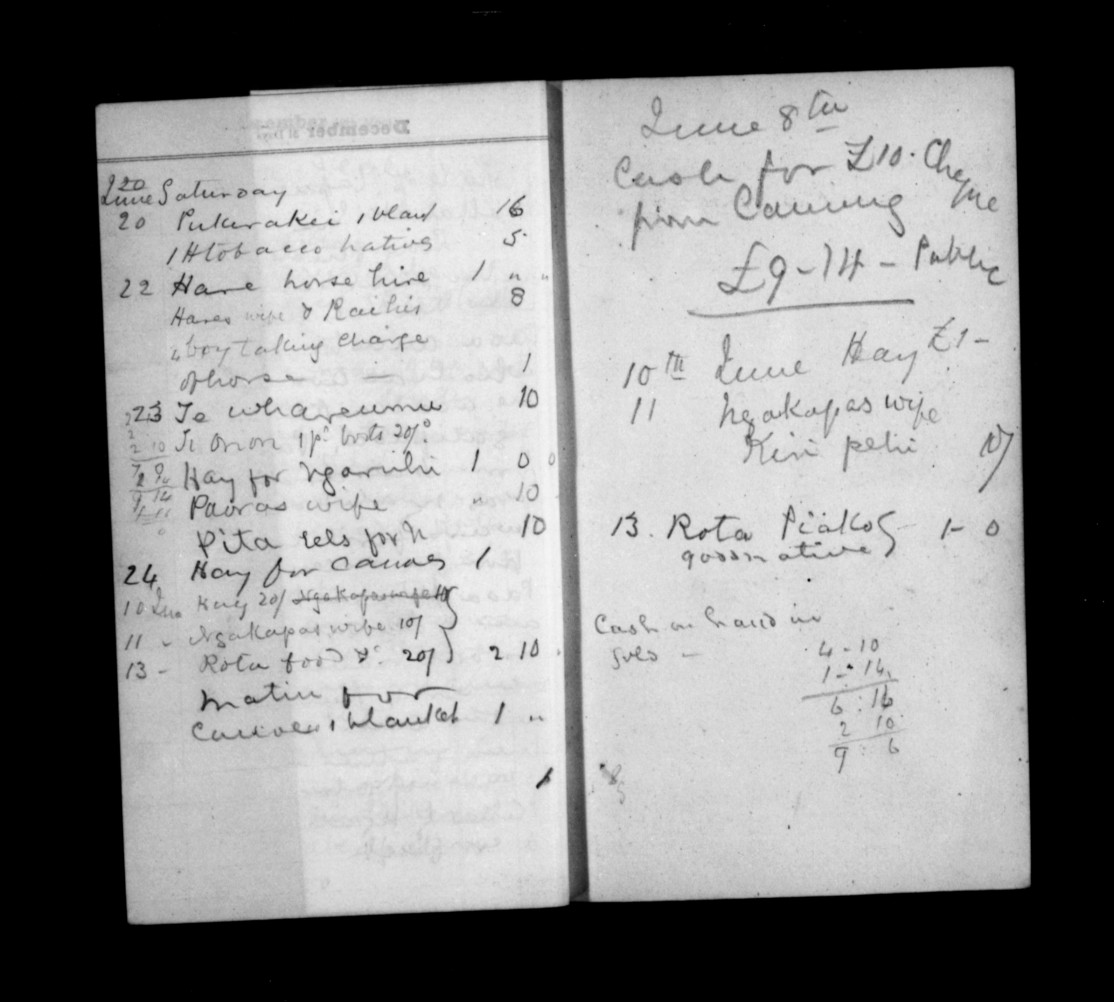 December
June Saturday
20 Pukurakei 1 blant 16
1 lb tobacco natives 5
22 Hare horse hire 1 " "
Hares wife & Raihis 8
" boy taking charge
of horse 1
23 Te whareumu 10
Te Oriori 1 pr. boots 20/
Hay for Ngaruhi 1 0 0
Paoras wife " 10
Pita rels for 10
24 Hay for Canoes 1
10 June Hay 20/ Ngakapaswife 10/
11 - Ngakapas wife 10/
13 - Rota food &c. 20/ 2 10
Matiu for
Canoes 1 blanket 1 "
June 8th
Cash for £10. Cheque
from Canning me
£9-14- Public
10th June Hay £1-
11 Ngakapas wife
Kiri pehi 10/
13. Rota Piäko
1- 0
Cash in hand in
4-10
1-14
6:16
2 10
9:6